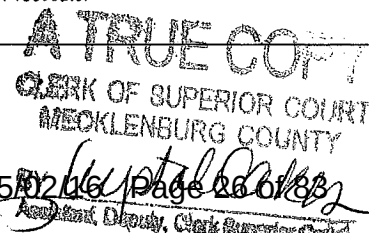 A TRUE COPY
CLERK OF SUPERIOR COURT
MECKLENBURG COUNTY
5/02/16 Page 26 of 83
Assistant, Deputy, Clerk Superior Court